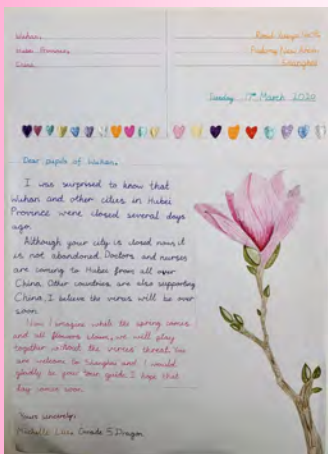 Wuhan,
Hubei Province,
China
Pudong New Area
Shanghai
17th March 2020
Dear pupils of Wuhan,
I was surprised to know that
Wuhan and other cities in Hubei
Province were closed several days
ago.
Although your city is closed now, it
is not abandoned. Doctors and nurses
are coming to Hubei from all over
China. Other countries are also supporting
China. I believe the virus will be over
soon.
Now I imagine while the spring comes
and all flowers bloom, we will play
together without the virus threat. You
are welcome to Shanghai and I would
gladly be your tour guide. I hope that
day comes soon.
Yours sincerely,
Michelle Grade 5 Dragon